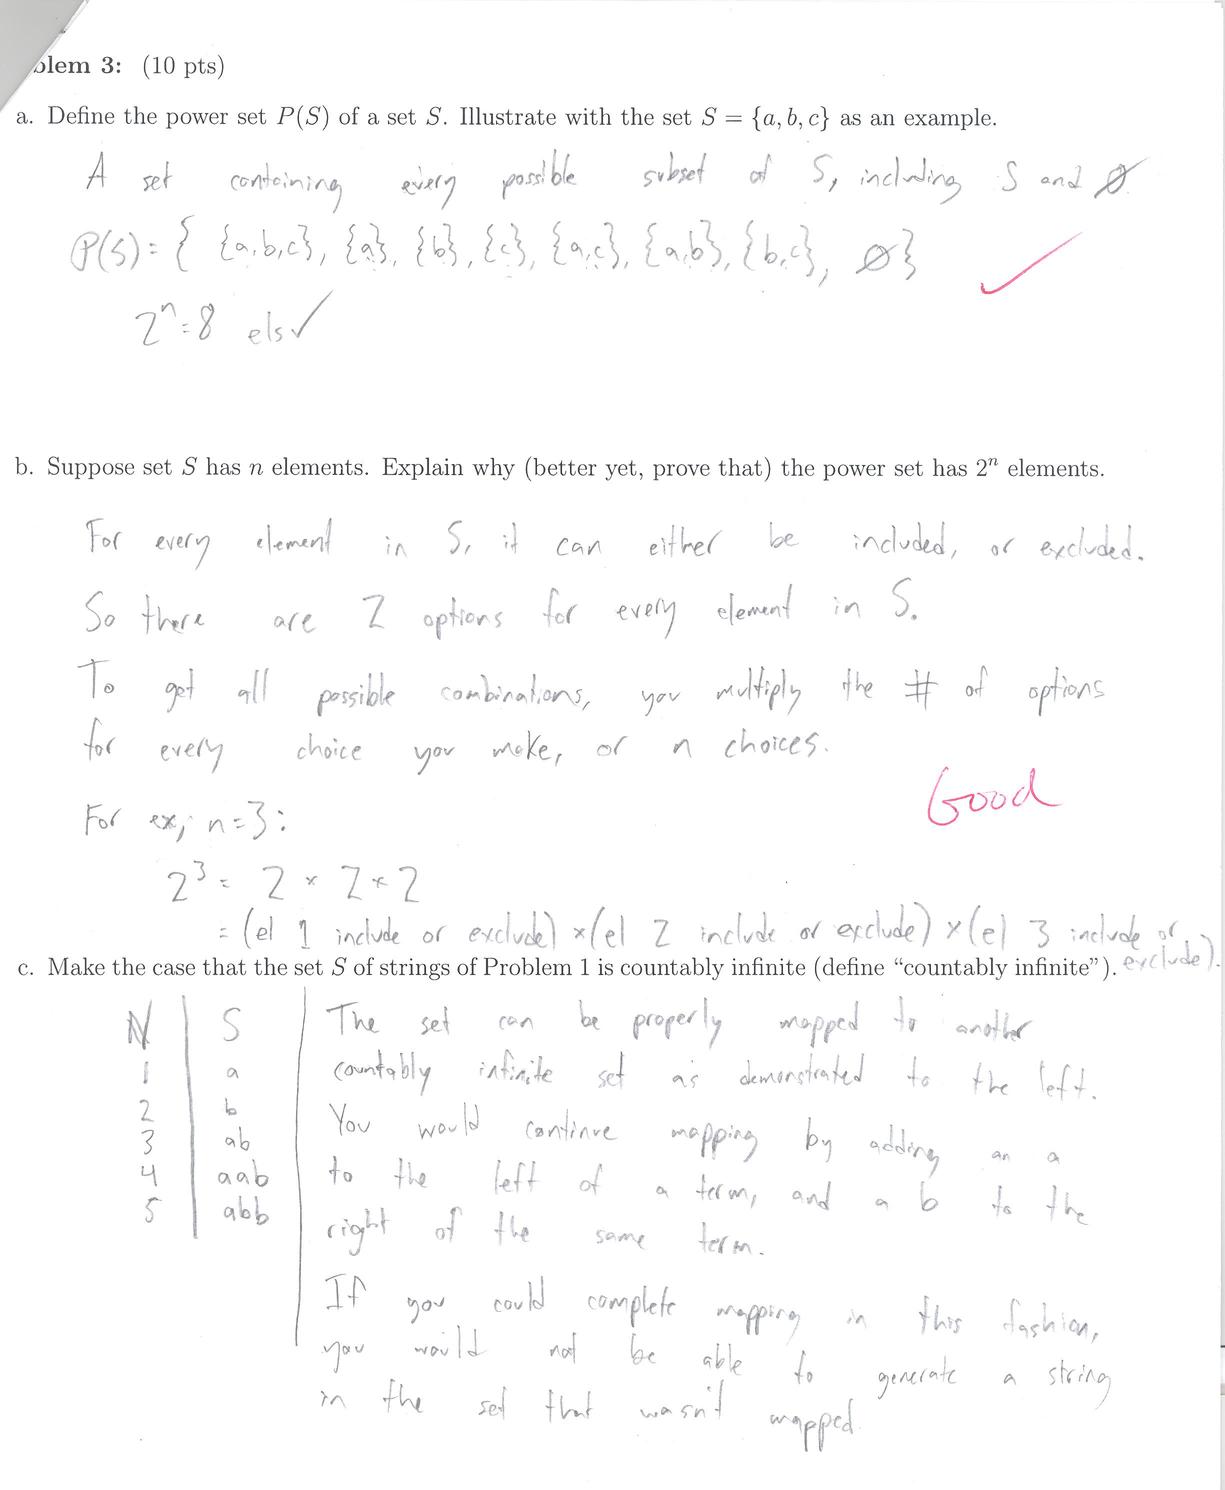 blem 3: (10 pts)
a. Define the power set P(S) of a set S. Illustrate with the set S = {a, b, c} as an example.
A set containing every possible subset of S, including S and ∅
P(S) = { {a,b,c}, {a}, {b}, {c}, {a,c}, {a,b}, {b,c}, ∅}
2ⁿ=8 els✓
b. Suppose set S has n elements. Explain why (better yet, prove that) the power set has 2ⁿ elements.
For every element in S, it can either be included, or excluded.
So there are 2 options for every element in S.
To get all possible combinations, you multiply the # of options
for every choice you make, or n choices.
Good
For ex, n=3:
2³ = 2 × 2 × 2
= (el 1 include or exclude) × (el 2 include or exclude) × (el 3 include or
exclude).
c. Make the case that the set S of strings of Problem 1 is countably infinite (define “countably infinite”).
N S
1 a
2 b
3 ab
4 aab
5 abb
The set can be properly mapped to another
countably infinite set as demonstrated to the left.
You would continue mapping by adding an a
to the left of a term, and a b to the
right of the same term.
If you could complete mapping in this fashion,
you would not be able to generate a string
in the set that wasn't mapped.